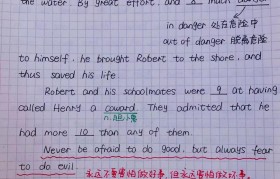 the water. By great effort, and 8 much danger
in danger 处在危险中
out of danger 脱离危险
to himself, he brought Robert to the shore, and
thus saved his life.
Robert and his schoolmates were 9 at having
called Henry a coward. They admitted that he
n.胆小鬼
had more 10 than any of them.
Never be afraid to do good, but always fear
to do evil.
永远不要害怕做好事,但永远害怕做坏事.